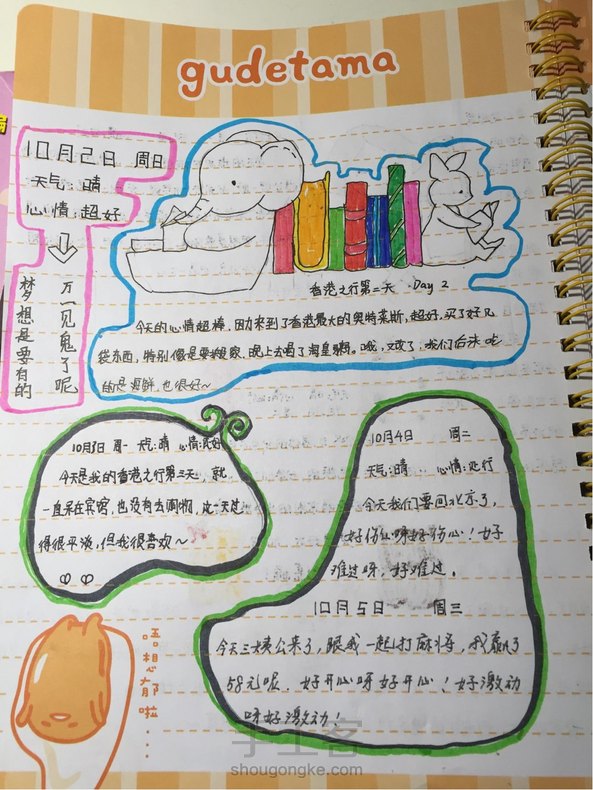 gudetama
10月2日 周日
天气:晴
心情:超好
万一见鬼了呢
梦想是要有的
香港之行第二天 Day 2
今天的心情超棒,因为来到了香港最大的奥特莱斯,超好,买了好几
袋东西,特别像是要搬家,晚上去喝了海皇粥。哦,又改了:我们后来吃
的是海鲜,也很好~
10月3日 周一 天气:晴 心情:良好
今天是我的香港之行第三天,就
一直呆在宾馆,也没有去购物,这一天过
得很平淡,但我很喜欢~
10月4日 周二
天气:晴 心情:还行
今天我们要回北京了,
好伤心呀好伤心!好
难过呀,好难过。
10月5日 周三
今天三大姨公来了,跟我一起打麻将,我赢了
58元呢.好开心呀好开心!好激动
呀好激动!
唔想郁啦……
手工客
shougongke.com